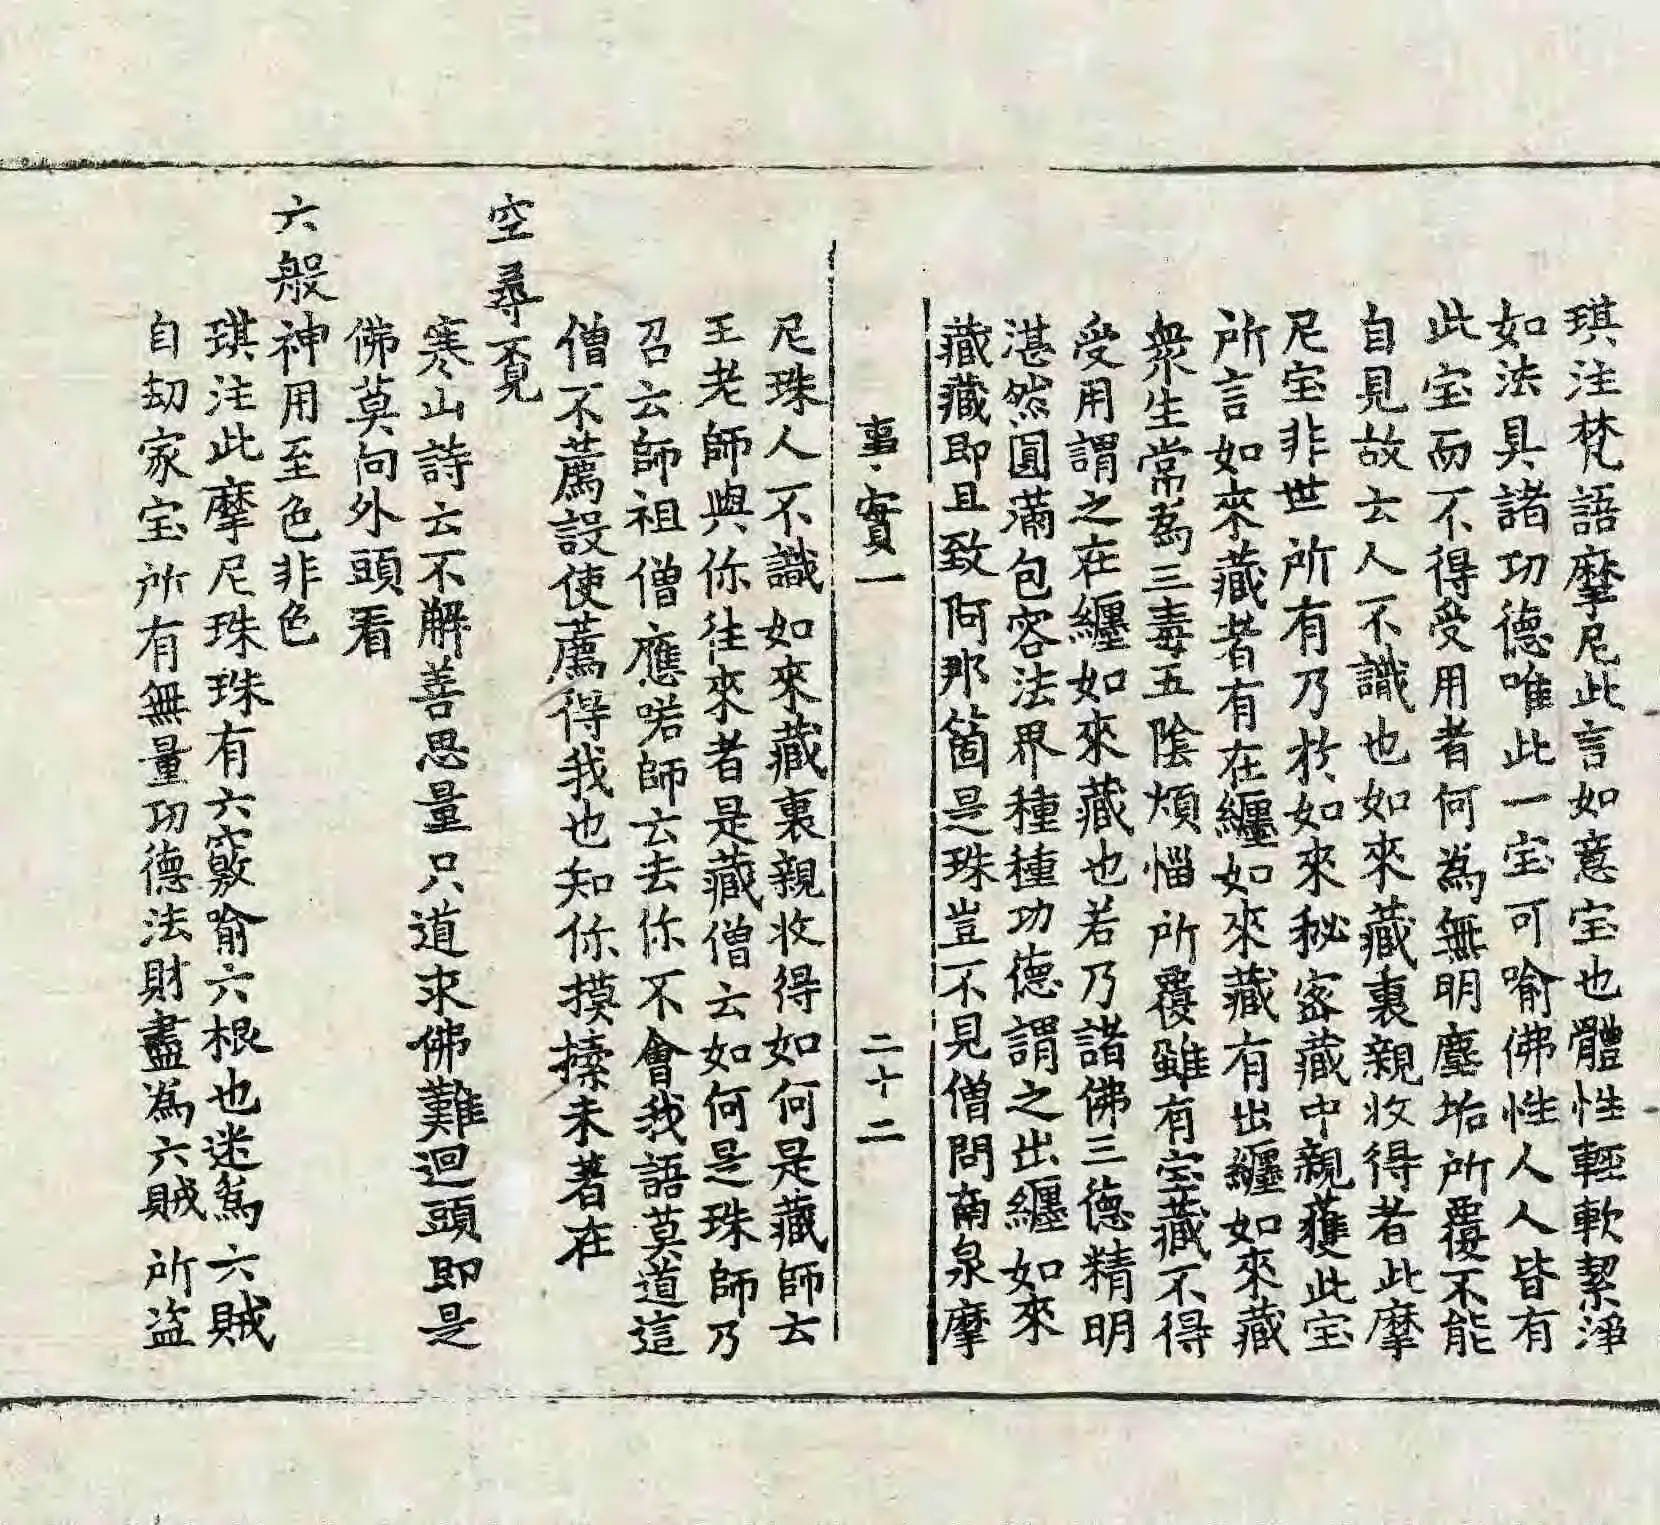 琪注梵語摩尼此言如意宝也體性輕軟潔淨
如法具諸功德唯此一宝可喻佛性人人皆有
此宝而不得受用者何為無明塵垢所覆不能
自見故云人不識也如來藏裏親收得者此摩
尼宝非世所有乃於如來秘密藏中親獲此宝
所言如來藏者有在纏如來藏有出纏如來藏
衆生常為三毒五陰煩惱所覆雖有宝藏不得
受用謂之在纏如來藏也若乃諸佛三德精明
湛然圓滿包容法界種種功德謂之出纏如來
藏藏即且致阿那箇是珠豈不見僧問南泉摩
事實一 二十二
尼珠人不識如來藏裏親收得如何是藏師云
王老師與你往來者是藏僧云如何是珠師乃
召云師祖僧應喏師云去你不會我語莫道這
僧不薦設使薦得我也知你摸𢱢未著在
空尋不見
寒山詩云不解善思量只道求佛難迴頭即是
佛莫向外頭看
六般神用至色非色
琪注此摩尼珠珠有六竅喻六根也迷為六賊
自劫家宝所有無量功德法財盡為六賊所盜